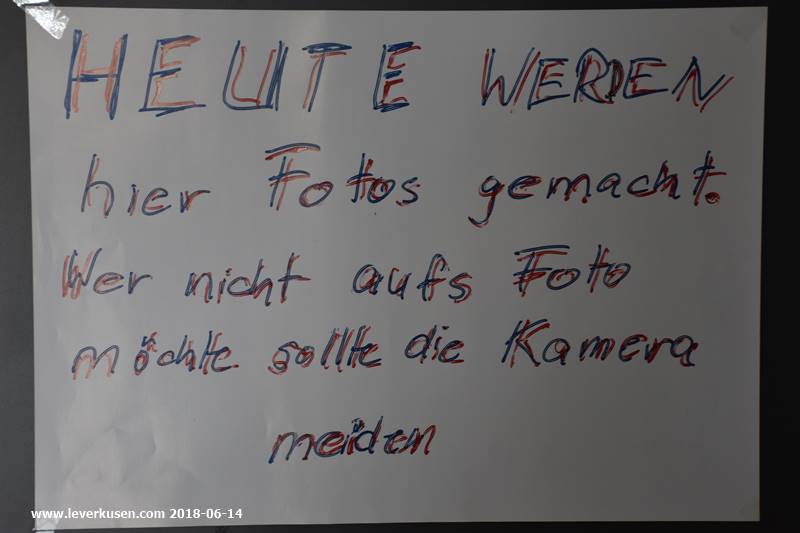 HEUTE WERDEN
hier Fotos gemacht.
Wer nicht aufs Foto
möchte sollte die Kamera
meiden
www.leverkusen.com 2018-06-14